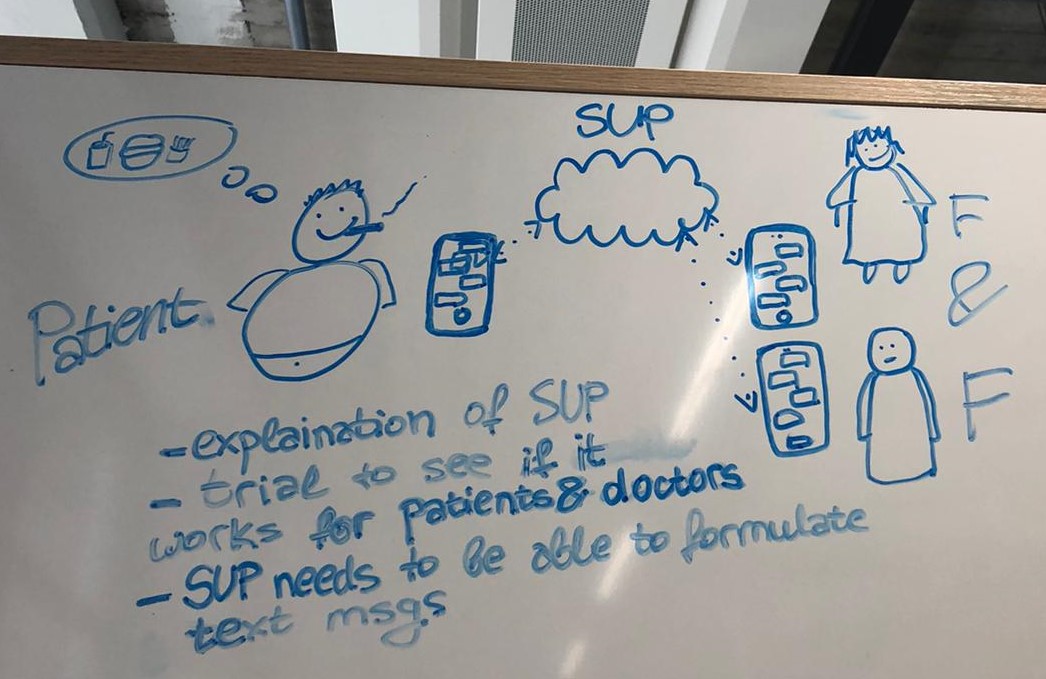 SUP
F
&
F
Patient
- explaination of SUP
- trial to see if it
works for patients & doctors
- SUP needs to be able to formulate
text msgs